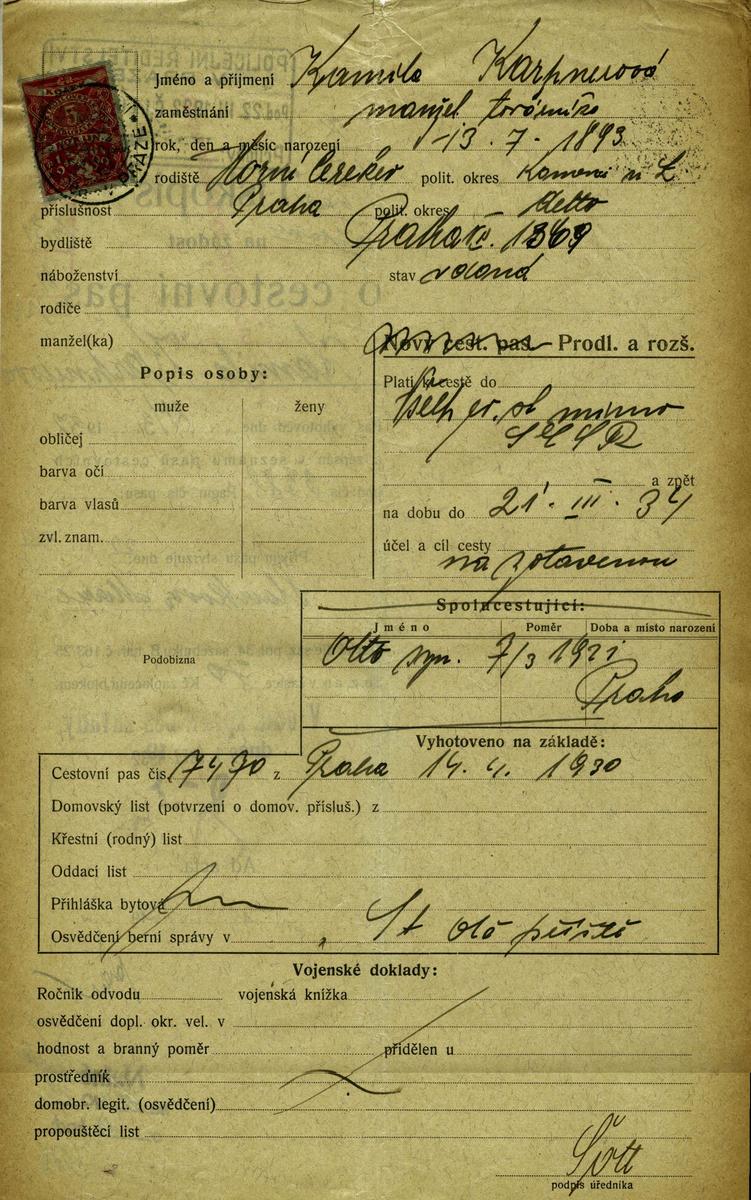 Jméno a příjmení Kamila Karpnerová
zaměstnání manžel. továrníka
rok, den a měsíc narození 13. 7. 1893
rodiště Horní Cerekev polit. okres Kamenice n L
příslušnost Praha polit. okres detto
bydliště Praha 1369
náboženství stav vdaná
rodiče
manžel(ka)
Nový cest. pas - Prodl. a rozš.
Popis osoby:
Platí k cestě do
muže ženy
mimo
obličej
SSSR
barva očí
a zpět
barva vlasů
na dobu do 21. III. 34
zvl. znam.
účel a cíl cesty
na zotavenou
Spolucestující:
Jméno Poměr Doba a místo narození
Otto syn. 7/3 1921
Podobizna
Praha
Vyhotoveno na základě:
Cestovní pas čís. 7470 z Praha 14. 4. 1930
Domovský list (potvrzení o domov. přísluš.) z
Křestní (rodný) list
Oddací list
Přihláška bytová
Osvědčení berní správy v
Vojenské doklady:
Ročník odvodu vojenská knížka
osvědčení dopl. okr. vel. v
hodnost a branný poměr přidělen u
prostředník
domobr. legit. (osvědčení)
propouštěcí list
podpis úředníka